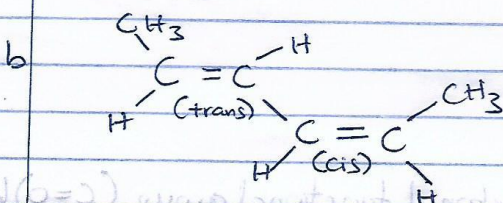 b
CH3
C = C H
H (trans)
C = C CH3
H (cis) H